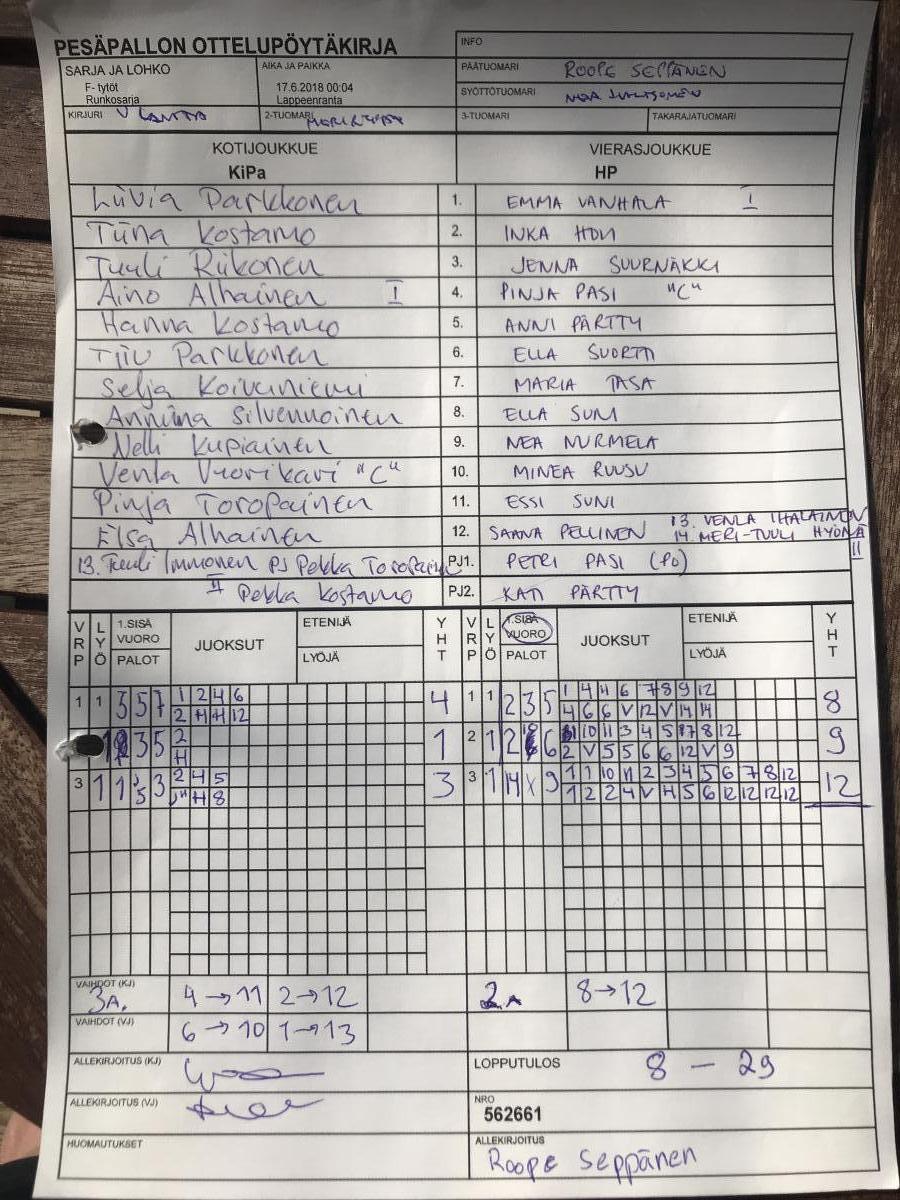 PESÄPALLON OTTELUPÖYTÄKIRJA
INFO
SARJA JA LOHKO
F- tytöt
Runkosarja
AIKA JA PAIKKA
17.6.2018 00:04
Lappeenranta
PÄÄTUOMARI ROOPE SEPPÄNEN
SYÖTTÖTUOMARI
KIRJURI V LANTTA
2-TUOMARI
3-TUOMARI
TAKARAJATUOMARI
KOTIJOUKKUE
KiPa
VIERASJOUKKUE
HP
Liivia Parkkonen 1. EMMA VANHALA I
Tiina Kostamo 2. INKA HOVI
Tuuli Riikonen 3. JENNA SUURNÄKKI
Aino Alhainen I 4. PINJA PASI "C"
Hanna Kostamo 5. ANNI PÄRTTY
Tiiu Parkkonen 6. ELLA SUORTTI
Selja Koivuniemi 7. MARIA TASA
Anniina Silvennoinen 8. ELLA SUNI
Nelli Kupiainen 9. NEA NURMELA
Venla Vuorikari "C" 10. MINEA RUUSU
Pinja Toropainen 11. ESSI SUNI
Elsa Alhainen 12. SAANA PELLINEN 13. VENLA IHALAINEN
14. MERI-TUULI HYÖNÄ
13. Tuuli Immonen PJ Pekka Toropainen PJ1. PETRI PASI (PJ) II
II Pekka Kostamo PJ2. KATI PÄRTTY
VRP LYÖ 1.SISÄ VUORO PALOT JUOKSUT ETENIJÄ LYÖJÄ YHT VRP LYÖ 1.SISÄ VUORO PALOT JUOKSUT ETENIJÄ LYÖJÄ YHT
1 1 3 5 7 1 2 4 6 4 1 1 2 3 5 1 4 4 6 7 8 9 12 8
2 H H 12 4 6 6 V 12 V 14 14
1 3 5 2 1 2 1 2 6 10 11 3 4 5 7 8 12 9
H 2 V 5 5 6 6 12 V 9
3 1 1 3 2 4 5 3 3 1 H X 9 1 1 10 11 2 3 4 5 6 7 8 12 12
H 8 1 2 2 4 V H 5 6 12 12 12 12
VAIHDOT (KJ) 3A. 4→11 2→12 2A 8→12
VAIHDOT (VJ) 6→10 1→13
ALLEKIRJOITUS (KJ)
LOPPUTULOS 8 – 29
ALLEKIRJOITUS (VJ)
NRO
562661
HUOMAUTUKSET
ALLEKIRJOITUS
Roope Seppänen